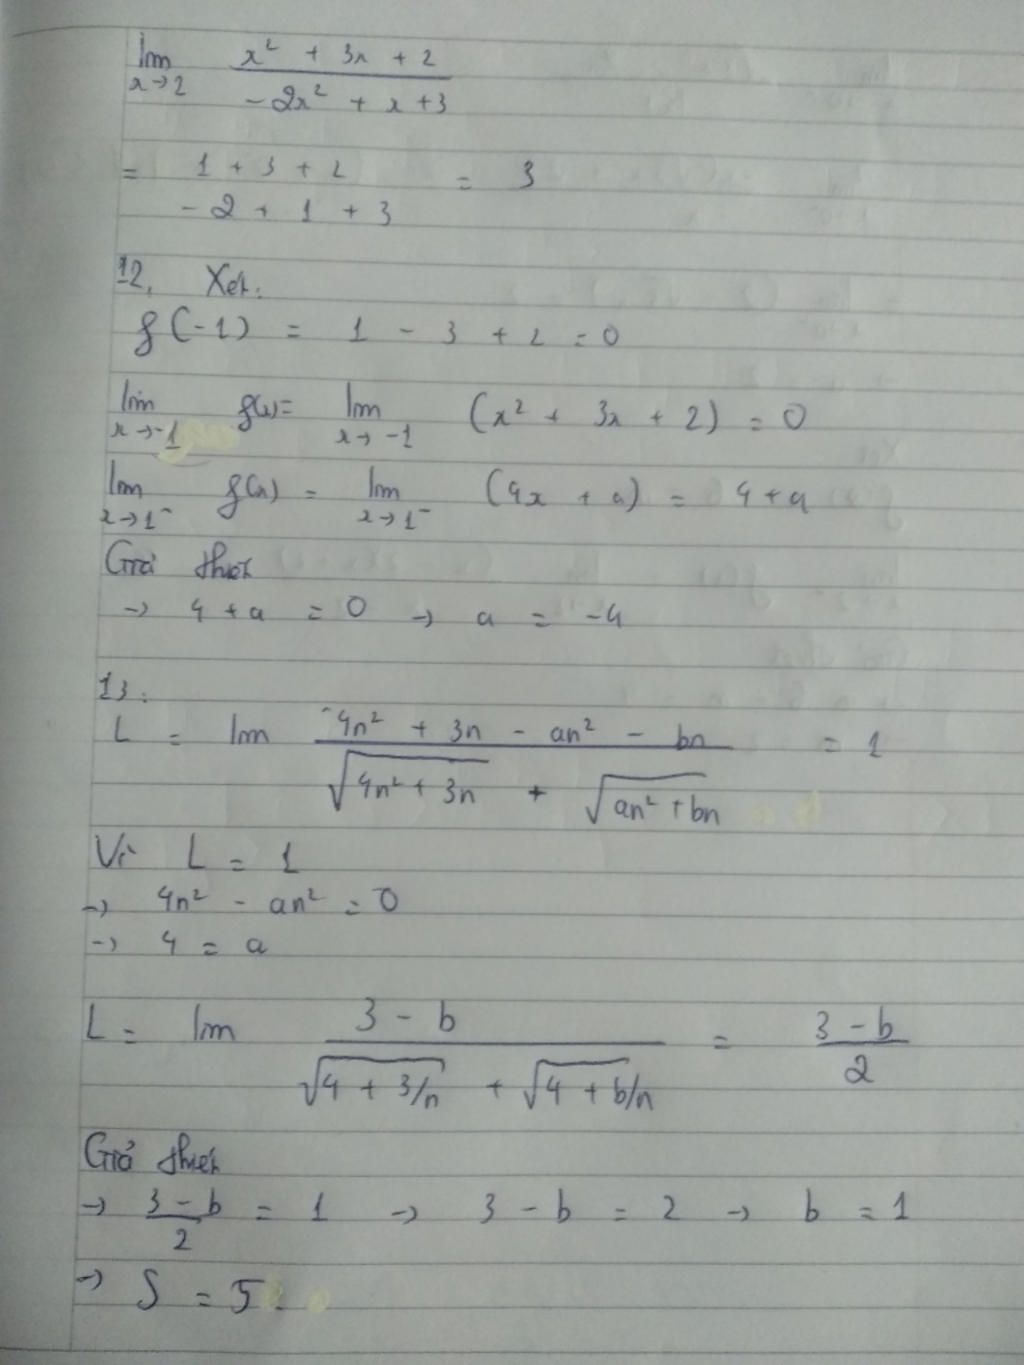 lim x→2 (x² + 3x + 2)/(-2x² + x + 3)
= (1 + 3 + 2)/(-2 + 1 + 3) = 3
12, Xét:
f(-1) = 1 - 3 + 2 = 0
lim x→-1 f(x) = lim x→-1 (x² + 3x + 2) = 0
lim x→1⁻ f(x) = lim x→1⁻ (4x + a) = 4 + a
Giả thiết
→ 4 + a = 0 → a = -4
13.
L = lim (4n² + 3n - an² - bn)/(√(4n² + 3n) + √(an² + bn)) = 1
Vì L = 1
→ 4n² - an² = 0
→ 4 = a
L = lim (3 - b)/(√(4 + 3/n) + √(4 + b/n)) = (3 - b)/2
Giả thiết
→ (3 - b)/2 = 1 → 3 - b = 2 → b = 1
→ S = 5.